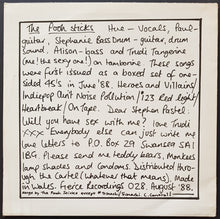 The Pooh Sticks Hue - Vocals, Paul -
guitar, Stephanie Bass Drum - guitar, drum
sound. Alison - bass and Trudi Tangerine
(me! the sexy one!) on tamborine. These songs
were first issued as a boxed set of one-
sided 45's in June '88. Heroes and Villains/
Indiepop Ain't Noise Pollution / 1-2-3 Red Light/
Heartbreak / On Tape. Dear Stephen Pastel.
Will you have sex with me? love Trudi
xxx "Everybody else can just write me
love letters to P.O. Box 29 Swansea SA1
1BG. Please send me teddy bears, Monkees
lamp shades and Condoms. Distributed through
the Cartel (whatever that means). Made
in Wales. Fierce Recordings 028. August '88.
songs by the Pooh Sticks except